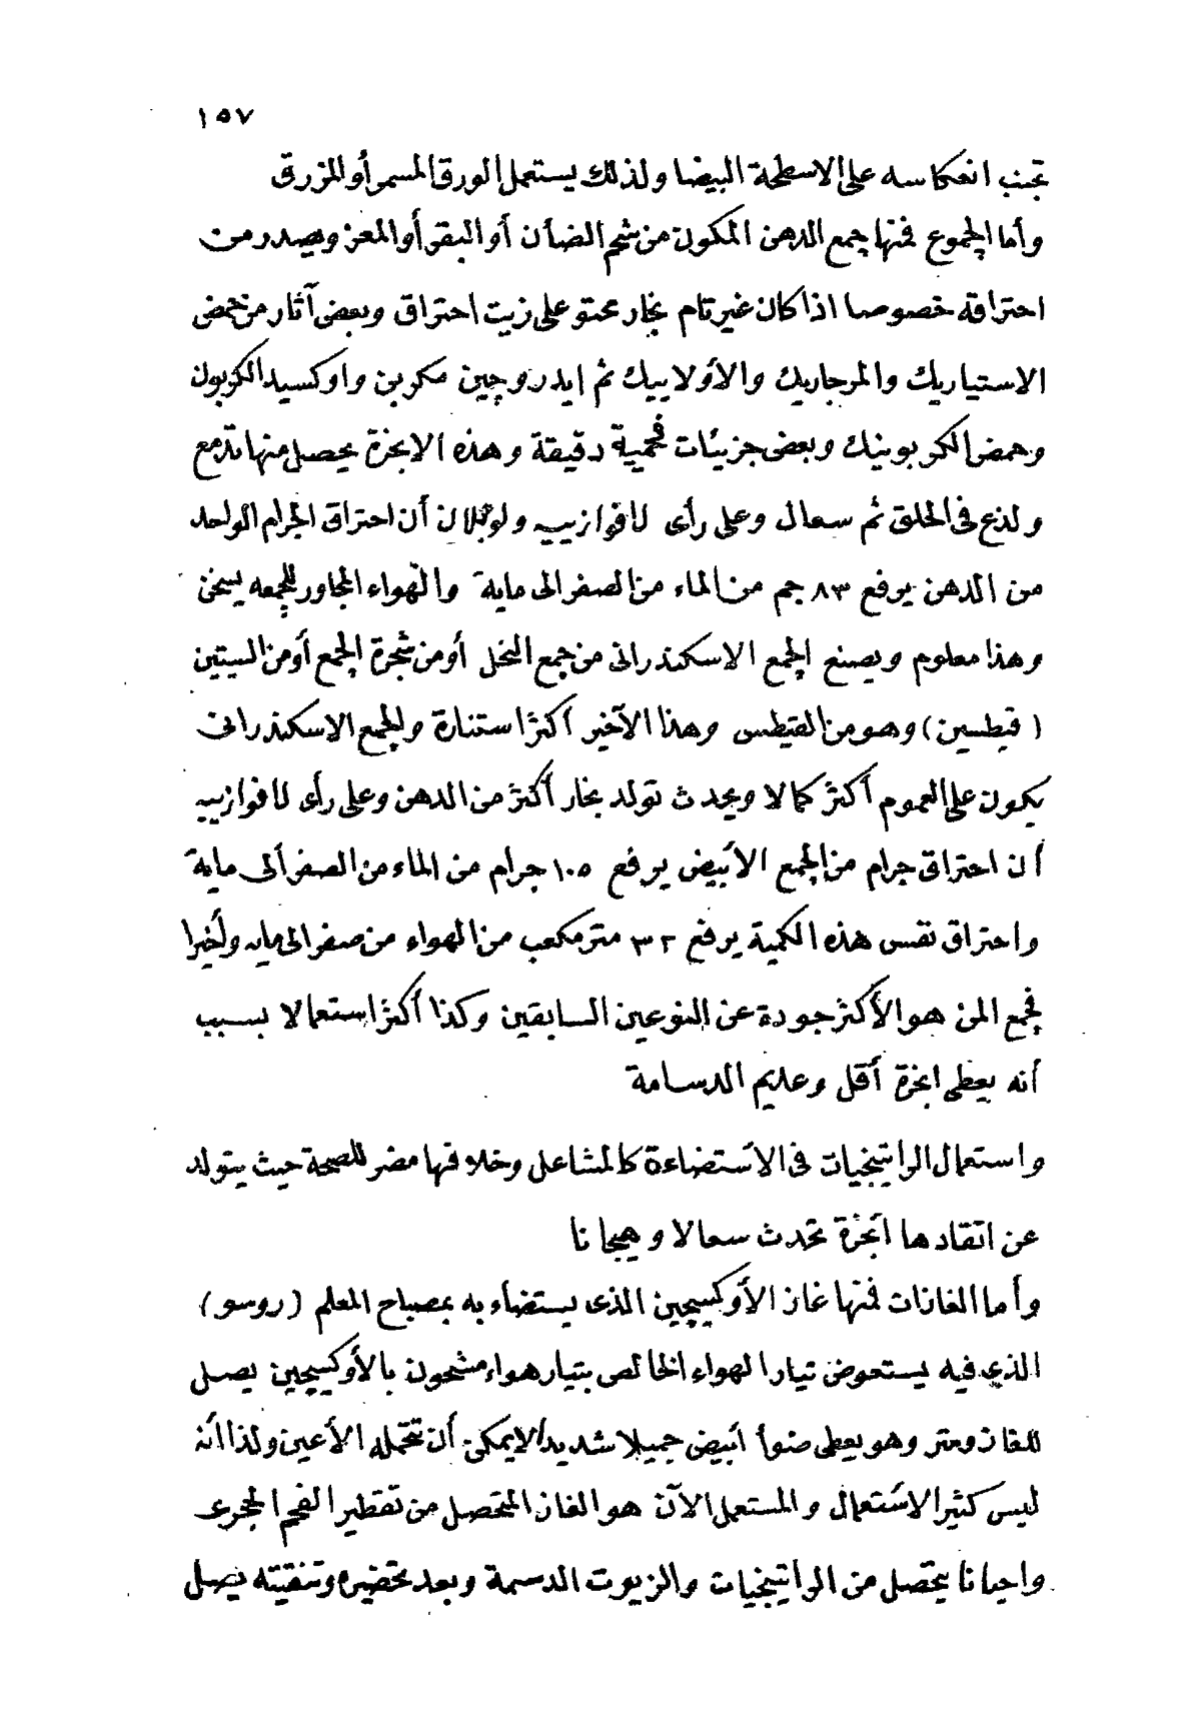 ١٥٧
تجنب انعكاسه على الاسطحة البيضا ولذلك يستعمل الورق المسمر أو المزرق
وأما الجموع فمنها جمع الدهن المكون من شحم الضأن أو البقر أو المعز ويصدر من
احتراقه خصوصا اذا كان غير تام بخار محتو على زيت احتراق وبعض آثار من حمض
الاستياريك والمرجاريك والأولاييك ثم ايدروچين مكربن واوكسيد الكربون
وحمض الكربونيك وبعض جزيئات فحمية دقيقة وهذه الابخرة يحصل منها تدمع
ولذع فى الحلق ثم سعال وعلى رأى لافوازييه ولوبلان أن احتراق الجرام الواحد
من الدهن يرفع ٨٣ جم من الماء من الصفر الى ماية والهواء المجاور للجمعه يسخن
وهذا معلوم ويصنع الجمع الاسكندرانى من جمع النخل أو من شجرة الجمع أو من السيتين
(قيطسين) وهو من القيطس وهذا الآخير أكثر استنارة والجمع الاسكندرانى
يكون على العموم أكثر كمالا ويحدث تولد بخار أكثر من الدهن وعلى رأى لافوازييه
أن احتراق جرام من الجمع الأبيض يرفع ١٠٥ جرام من الماء من الصفر ألى ماية
واحتراق نفس هذه الكمية يرفع ٣٢ متر مكعب من الهواء من صفر الى مايه وأخيرا
فجمع المن هو الأكثر جودة عن النوعين السابقين وكذا أكثر استعمالا بسبب
أنه يعطى ابخرة أقل وعديم الدسامة
واستعمال الراتيخيات فى الأستضاءة كالمشاعل وخلافها مضر للصحة حيث يتولد
عن اتقادها أبخرة تحدث سعالا وهيجانا
وأما الغازات فمنها غاز الأوكسيچين الذى يستضاء به بمصباح المعلم (روسو)
الذى فيه يستعوض تيار الهواء الخالص بتيار هواء مشحون بالأوكسيچين يصل
للغاز ومتر وهو يعطى ضوأ أبيض جميلا شديدا لا يمكن أن تتحمله الأعين ولذا أنه
ليس كثير الأستعمال والمستعمل الآن هو الغاز المتحصل من تقطير الفحم الحجرى
واحيانا يتحصل من الراتيخيات والزيوت الدسمة وبعد تحضيره وتنقيته يصل